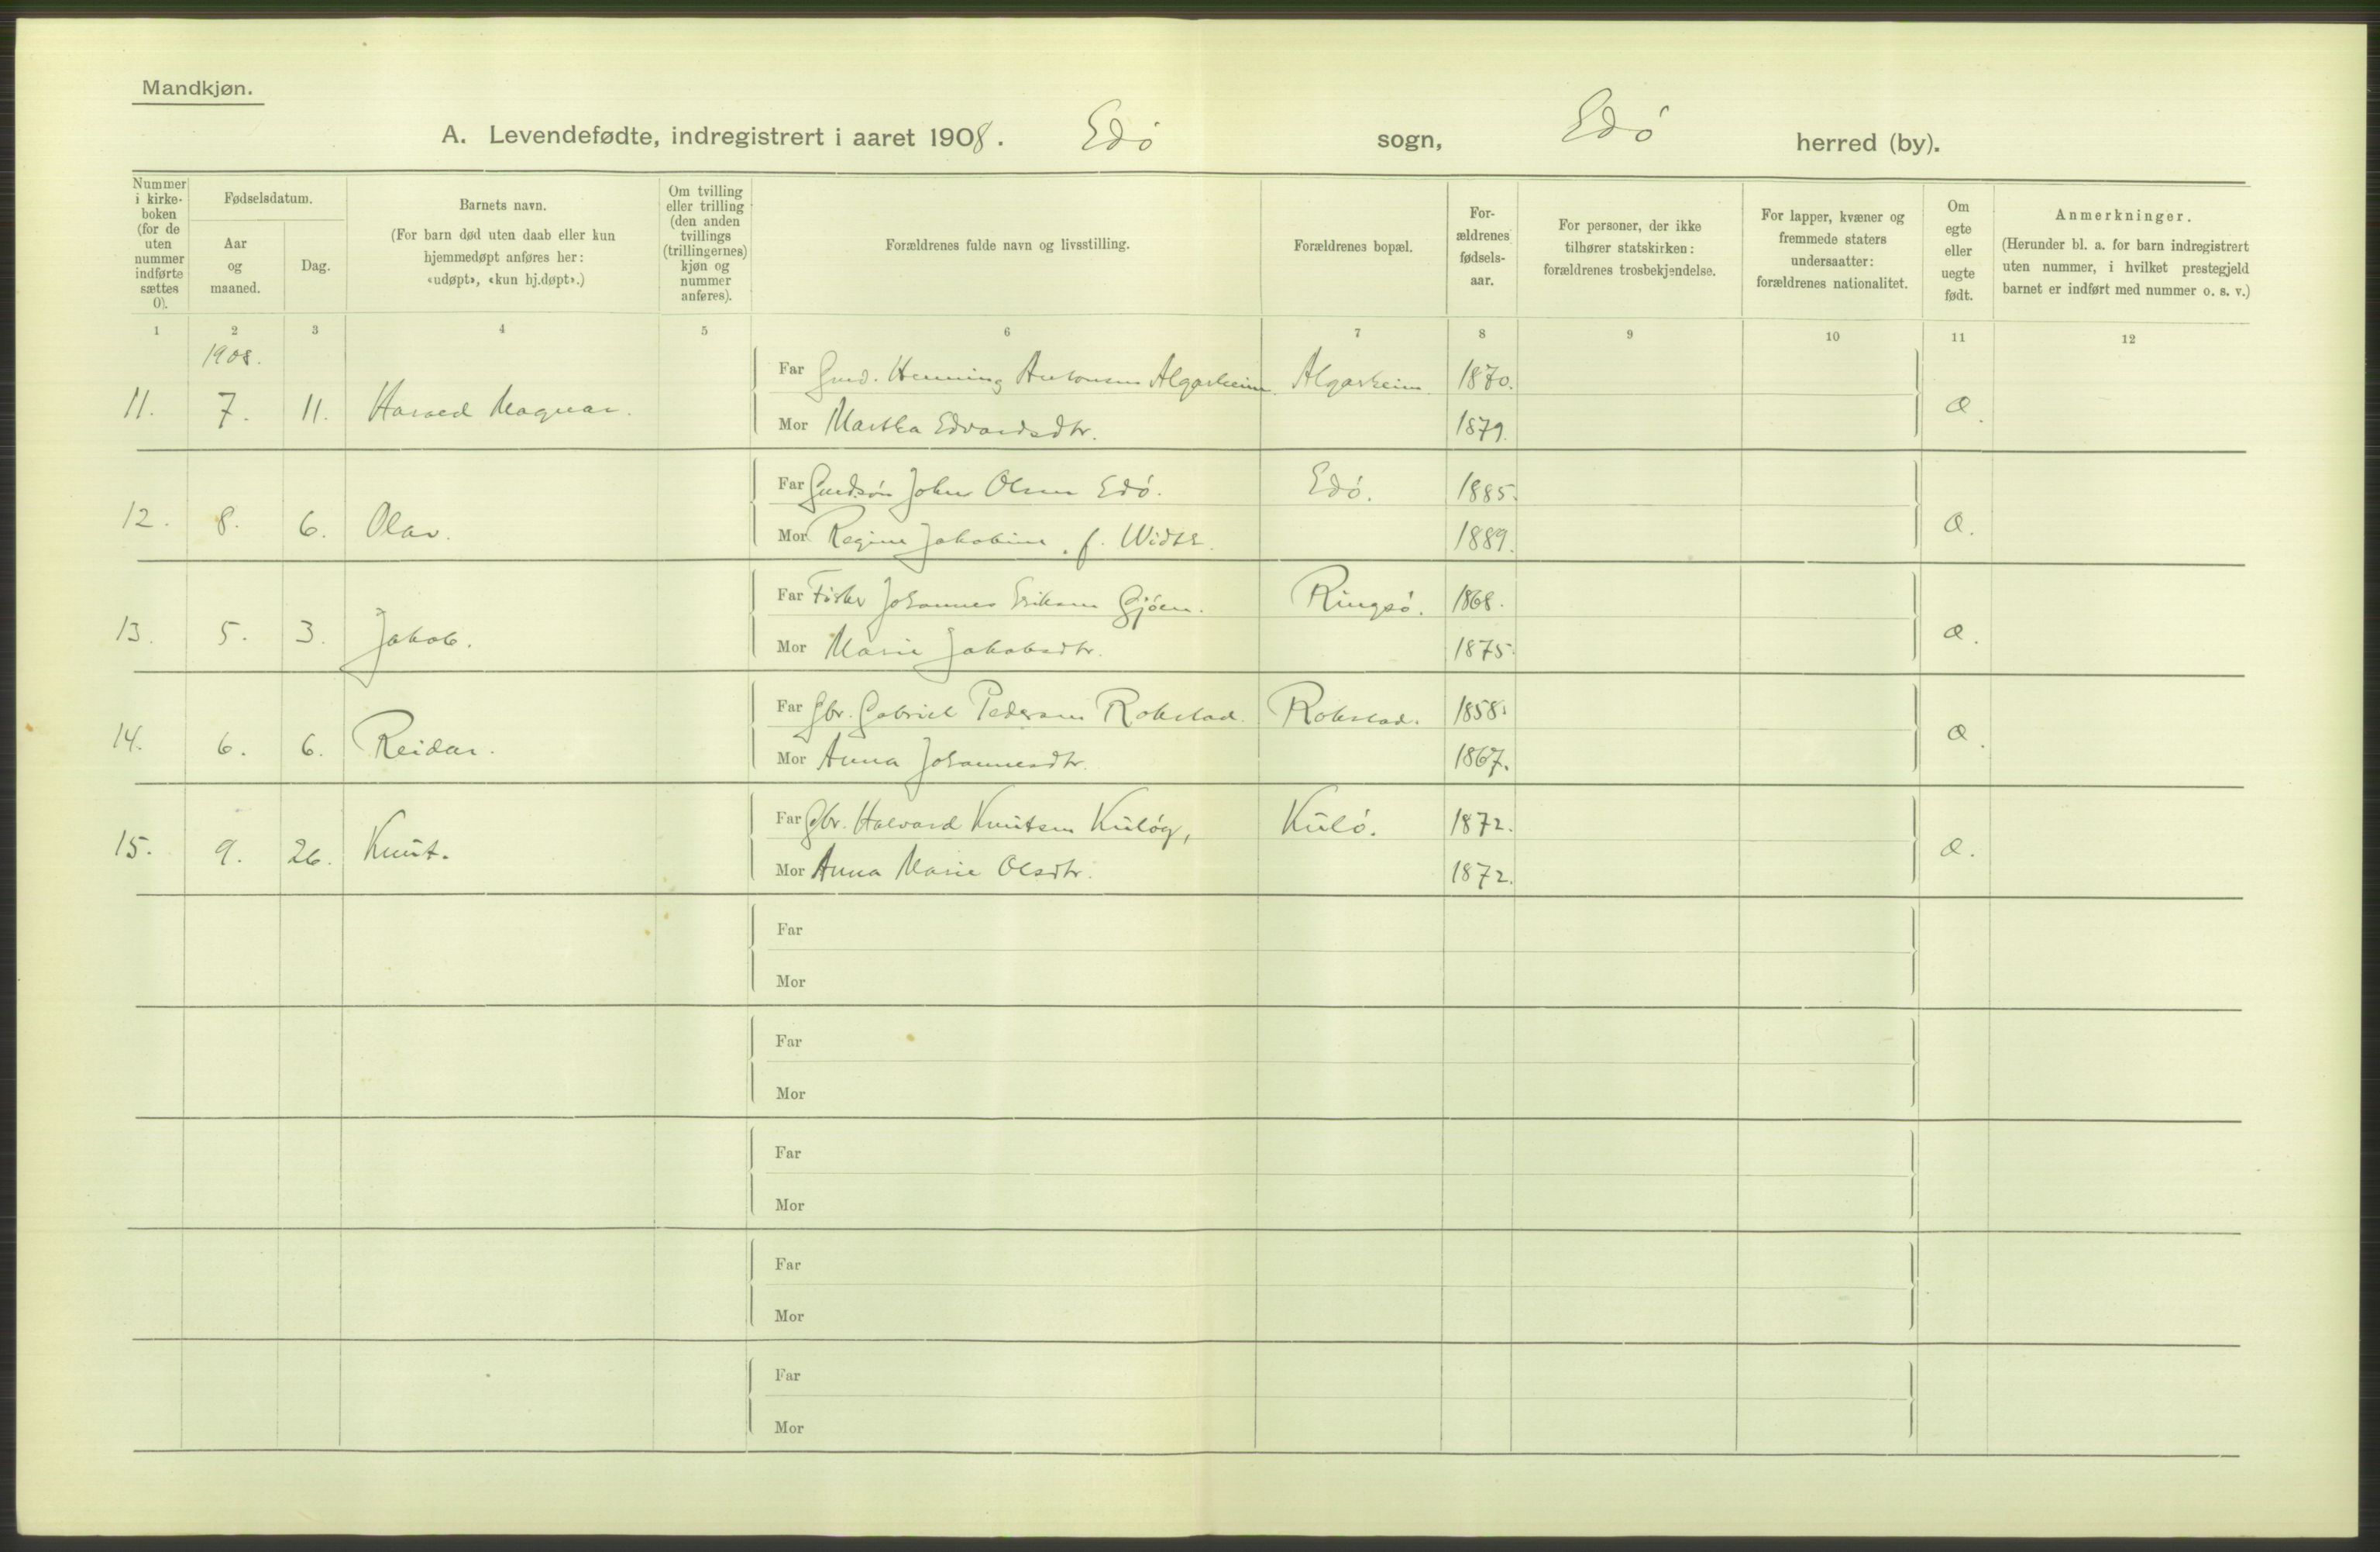 Mandkjøn.
A. Levendefødte, indregistrert i aaret 1908. Edö sogn, Edö herred (by).
Nummer i kirkeboken (for de uten nummer indførte sættes 0).
Fødselsdatum.
Aar og maaned.
Dag.
Barnets navn.
(For barn død uten daab eller kun hjemmedøpt anføres her: «udøpt», «kun hj.døpt».)
Om tvilling eller trilling (den anden tvillings (trillingernes) kjøn og nummer anføres).
Forældrenes fulde navn og livsstilling.
Forældrenes bopæl.
Forældrenes fødselsaar.
For personer, der ikke tilhører statskirken: forældrenes trosbekjendelse.
For lapper, kvæner og fremmede staters undersaatter: forældrenes nationalitet.
Om egte eller uegte født.
Anmerkninger.
(Herunder bl. a. for barn indregistrert uten nummer, i hvilket prestegjeld barnet er indført med nummer o. s. v.)
1 2 3 4 5 6 7 8 9 10 11 12
1908.
Far Gmd. Henning Antonsen Algarheim. Algarheim. 1870.
11. 7. 11. Harald Magnar. Æ.
Mor Martha Edvardsdtr. 1879.
Far Gmdsön Johan Olsen Edö. Edö. 1885.
12. 8. 6. Olav. Æ.
Mor Regine Jakobine f. 1889.
Far Fisker Johannes Eriksen Gjöen. Ringsö. 1868.
13. 5. 3. Jakob. Æ.
Mor Marie Jakobsdtr. 1875.
Far Gbr. Gabriel Pedersen Rokstad. Rokstad. 1858.
14. 6. 6. Reidar. Æ.
Mor Anna Johannesdtr. 1867.
Far Gbr. Halvard Knutsen Kulöy, Kulö. 1872.
15. 9. 26. Knut. Æ.
Mor Anna Marie Olsdtr. 1872.
Far
Mor
Far
Mor
Far
Mor
Far
Mor
Far
Mor